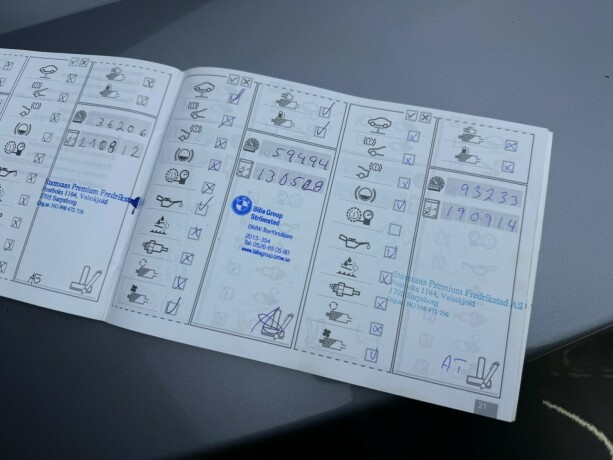 36206
210812
Stamsaas Premium Fredrikstad
Postboks 1164, Valaskjold
1705 Sarpsborg
59494
130528
Bilia Group
Strömstad
2013-354
Tel: 0526-65 05 80
www.biliagroup.bmw.se
93233
190914
Stamsaas Premium Fredrikstad AS
Postboks 1164, Valaskjold
1705 Sarpsborg
A.T.
21